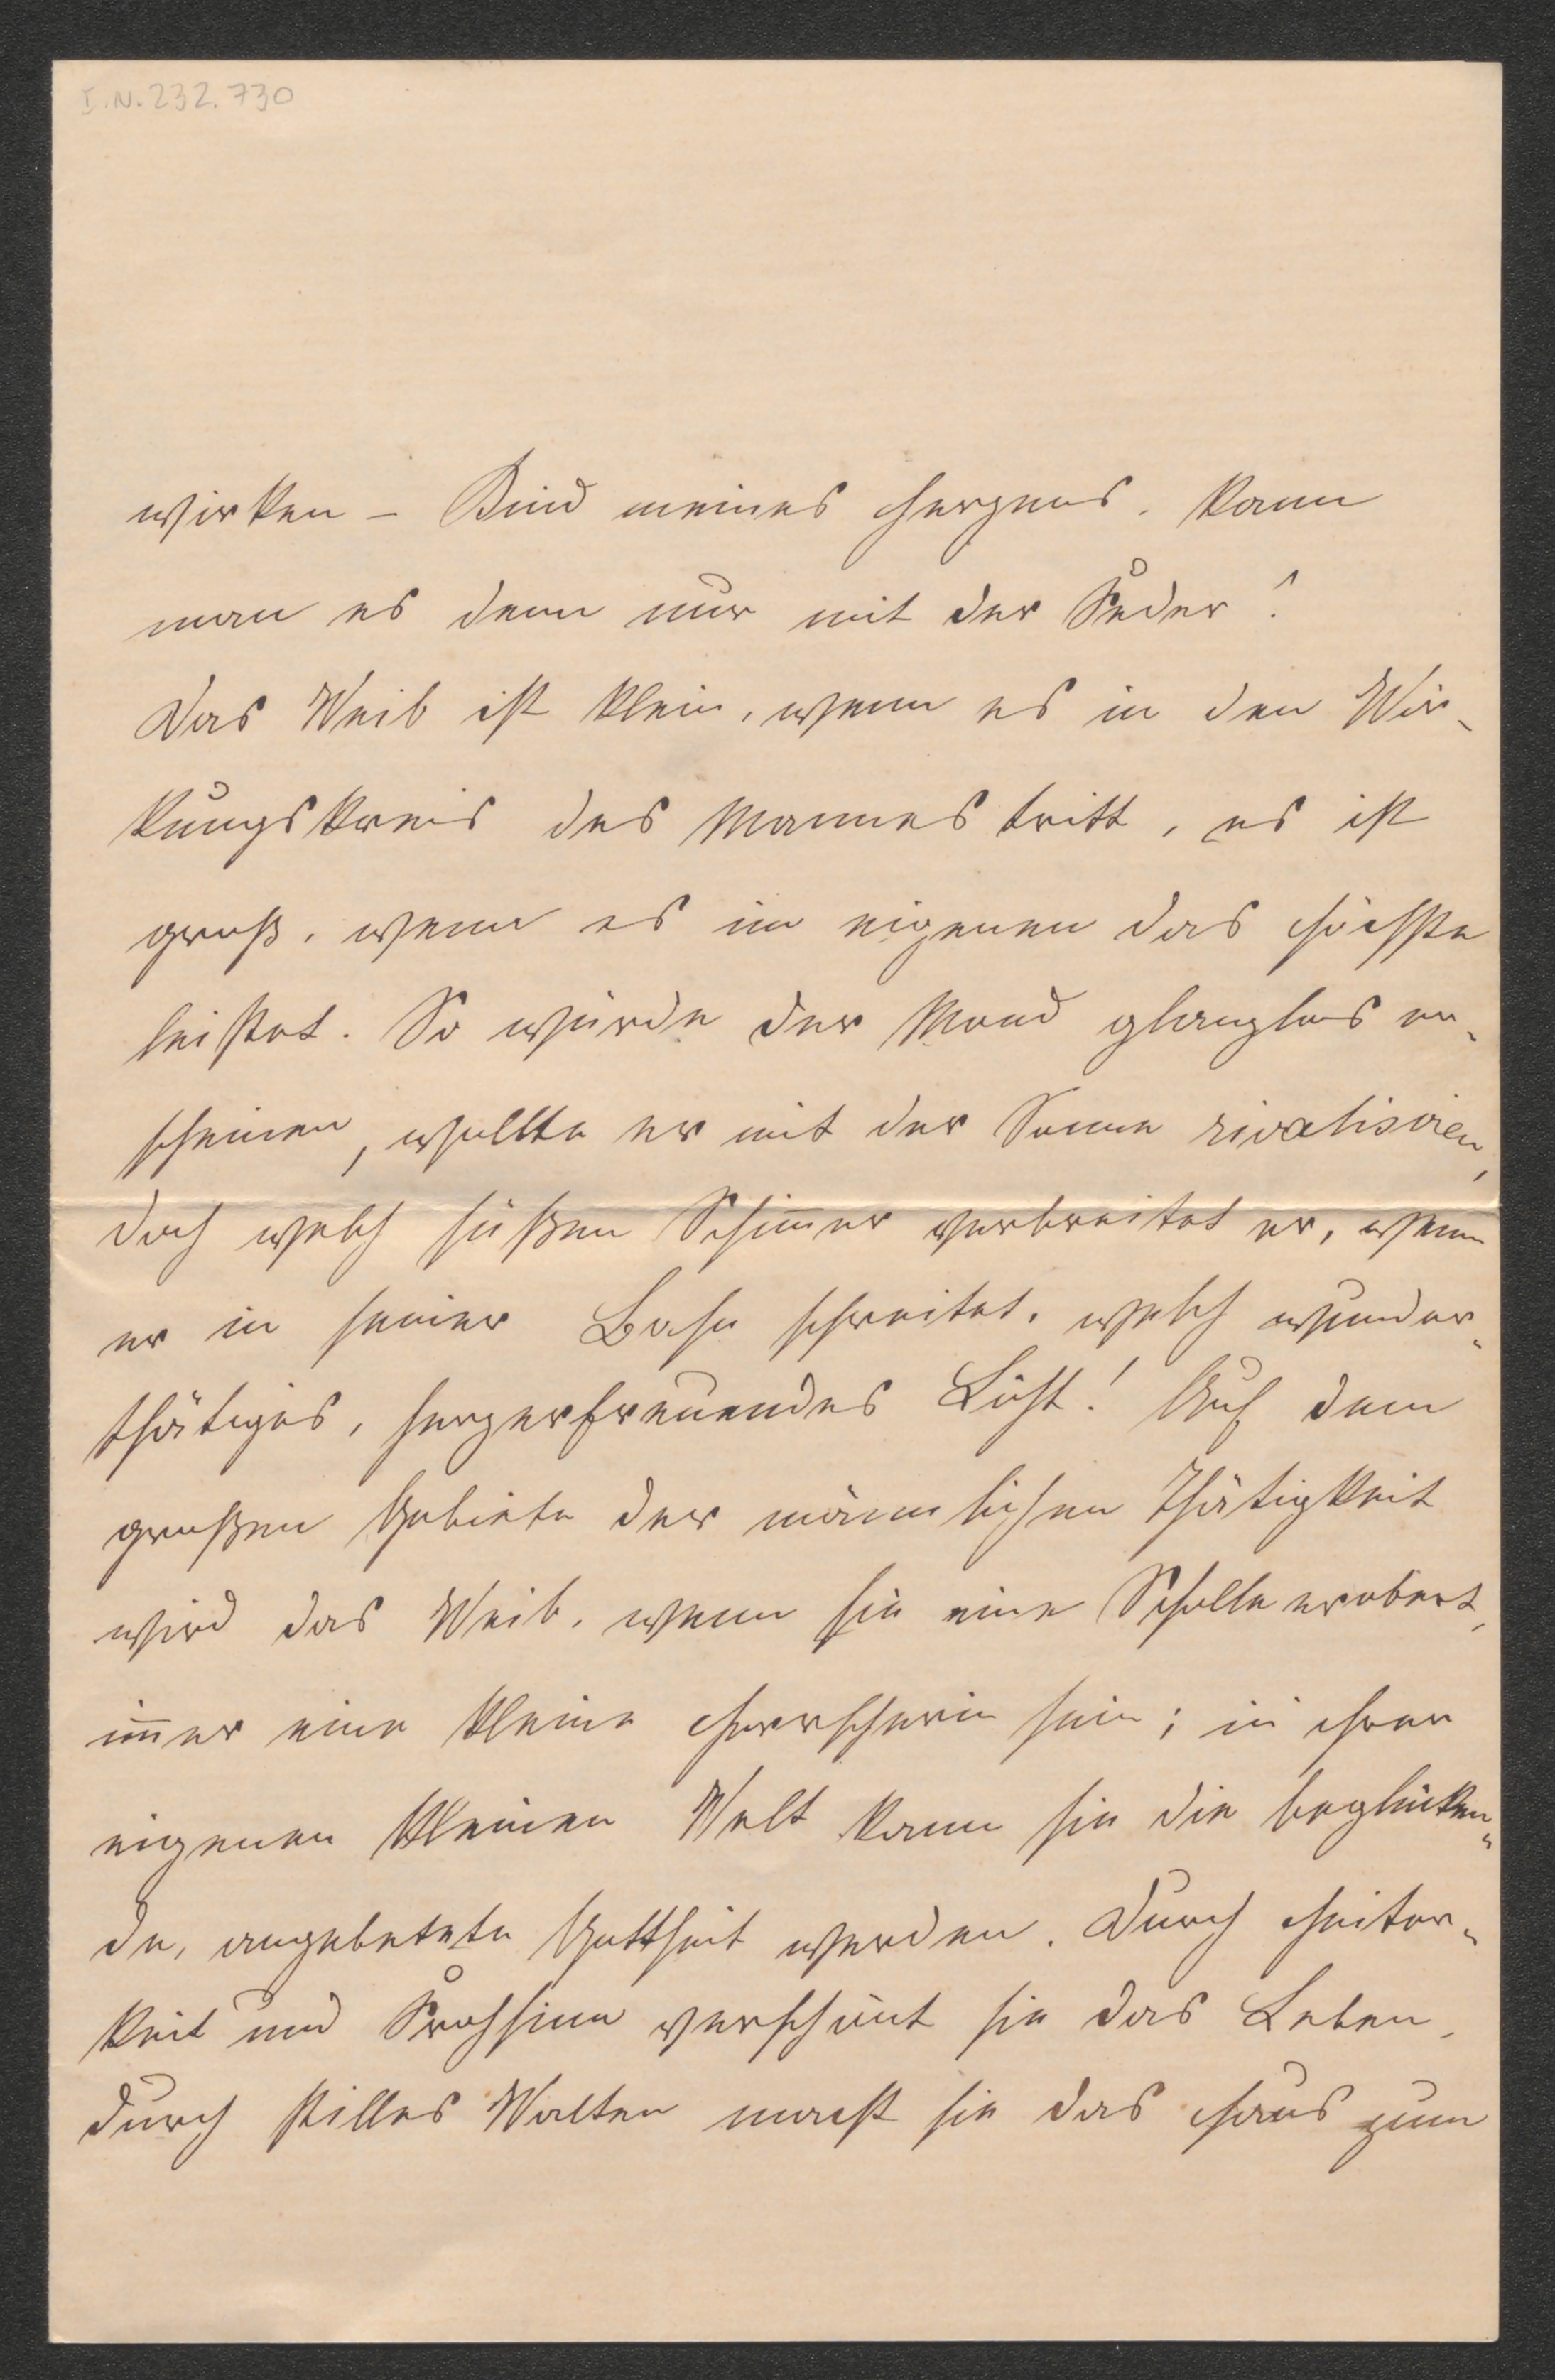 I.N. 232.730
wirken – Kind meines Herzens, kann
man es denn nur mit der Feder?
Das Weib ist klein, wenn es in den Wir-
kungskreis des Mannes tritt, es ist
groß, wenn es im eigenen das Höchste
leistet. So würde der Mond glanzlos er-
scheinen, wollte er mit der Sonne rivalisiren,
doch welch süßen Schim̅er verbreitet er, wenn
er in seiner Bahn schreitet, welch wunder-
thätiges, herzerfreuendes Licht! Auf dem
großen Gebiete der männlichen Thätigkeit
wird das Weib, wenn sie eine Scholle erobert,
im̅er eine kleine Herrscherin sein; in ihrer
eigenen kleinen Welt kann sie die beglücken-
de, angebetete Gottheit werden. Durch Heiter-
keit und Frohsinn verschönt sie das Leben,
durch stilles Walten macht sie das Haus zum